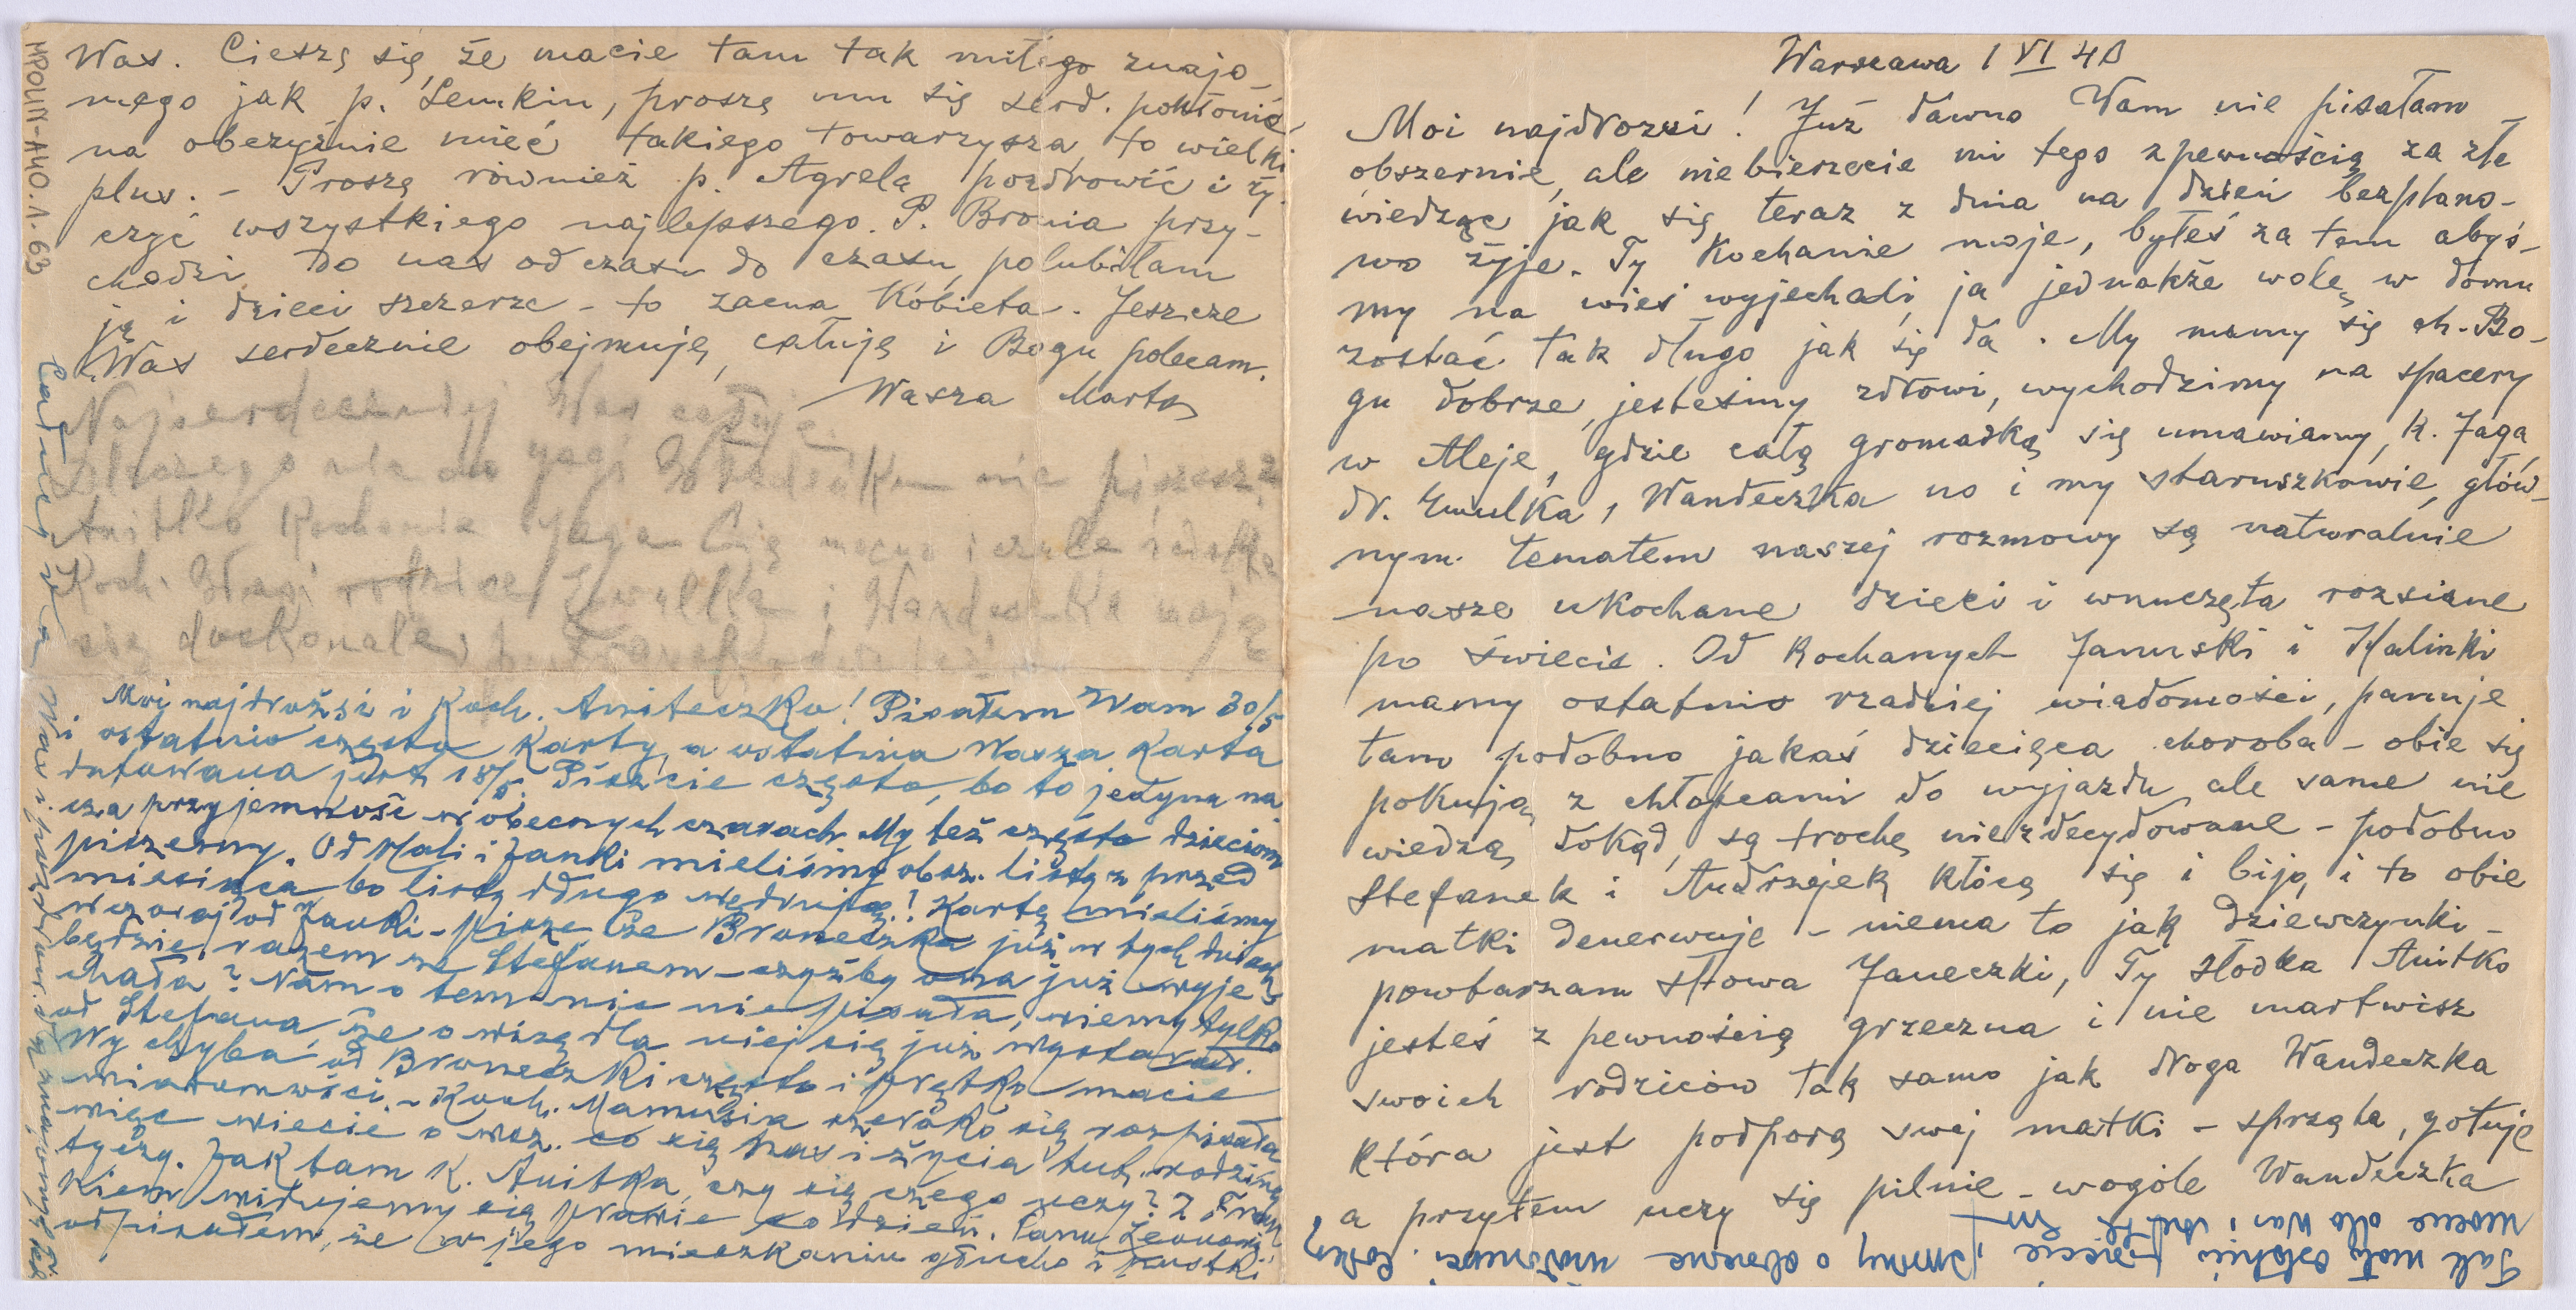 Warszawa 1 VI 40
Moi najdrozsi! Już dawno Wam nie pisałam
obszernie, ale niebierzecie mi tego z pewnością za złe
wiedząc jak się teraz z dnia na dzień bezplano-
wo żyje. Ty Kochanie moje, byłeś za tem abyś-
my na wieś wyjechali, ja jednakże wolę w domu
zostać tak długo jak się da. My mamy się ch. Bo-
gu dobrze, jesteśmy zdrowi, wychodzimy na spacery
w Aleje, gdzie całą gromadką się umawiamy, k. Jaga,
dr. Ewulka, Wandeczka no i my staruszkowie, głów-
nym tematem naszej rozmowy są naturalnie
nasze ukochane dzieci i wnuczęta rozsiane
po świecie. Od Kochanych Januski i Halinki
mamy ostatnio rzadziej wiadomości, panuje
tam podobno jakaś dziecięca choroba - obie się
pokują z chłopcami do wyjazdu ale same nie
wiedzą dokąd, są trochę niezdecydowane - podobno
Stefanek i Andrzejek kłócą się i biją, i to obie
matki denerwuje - niema to jak dziewczynki -
powtarzam słowa Janeczki, Ty słodka Anitko
jesteś z pewnością grzeczna i nie martwisz
swoich rodziców tak samo jak droga Wandeczka
która jest podporą swej matki - sprząta, gotuje
a przytem uczy się pilnie - wogóle Wandeczka
Was. Cieszę się że macie tam tak miłego znajo-
mego jak p. Lemkin, proszę mu się serd. pokłonić
na obczyźnie mieć takiego towarzysza to wielki
plus. - Proszę również p. Agrela pozdrowić i ży-
czyć wszystkiego najlepszego. P. Bronia przy-
chodzi do nas od czasu do czasu, polubiłam
ją i dzieci szczerze - to zacna Kobieta. Jeszcze
Was serdecznie obejmuję, całuję i Bogu polecam.
Wasza Marta
Najserdeczniej Was całuję.
Dlaczego nie do Jagi nie piszesz?
Anitko Kochanie Jaga Cię mocno i czule ściska
Koch. rodzice Ewulka i Wandeczka mają
się doskonale,
Moi najdrożsi i Koch. Aniteczko! Pisałem Wam 30/5
i ostatnio częste Karty, a ostatnia Wasza Karta
datowana jest 18/5. Piszcie często, bo to jedyna na-
sza przyjemność w obecnych czasach. My też często dzieciom
piszemy. Od Hali i Janki mieliśmy obsz. listy z przed
miesiąca bo listy długo wędrują! Kartę mieliśmy
wczoraj od Janki - pisze że Broneczka już w tych dniach
będzie razem ze Stefanem - czyżby ona już wyje-
chała? Nam o tem nic nie pisała, wiemy tylko
od Stefana, że o wizę dla niej się już wystarał.
Wy chyba od Broneczki często i prędko macie
wiadomości. - Koch. Mamusia szeroko się rozpisała
więc wiecie o wsz. co się nas i życia tut. rodziny
tyczy. Jak tam K. Anitka, czy się czego uczy? Z Fran-
kiem widujemy się prawie co dzień. Panu
odpisałem, że w jego mieszkaniu głucho i pustki
Całuję Was i pozdrow. dla znajomych
Tak mało ostatnio piszecie, prosimy o obszerne wiadomości. Całuję
mocno obo Was i
MPOLIN-A40.1.63